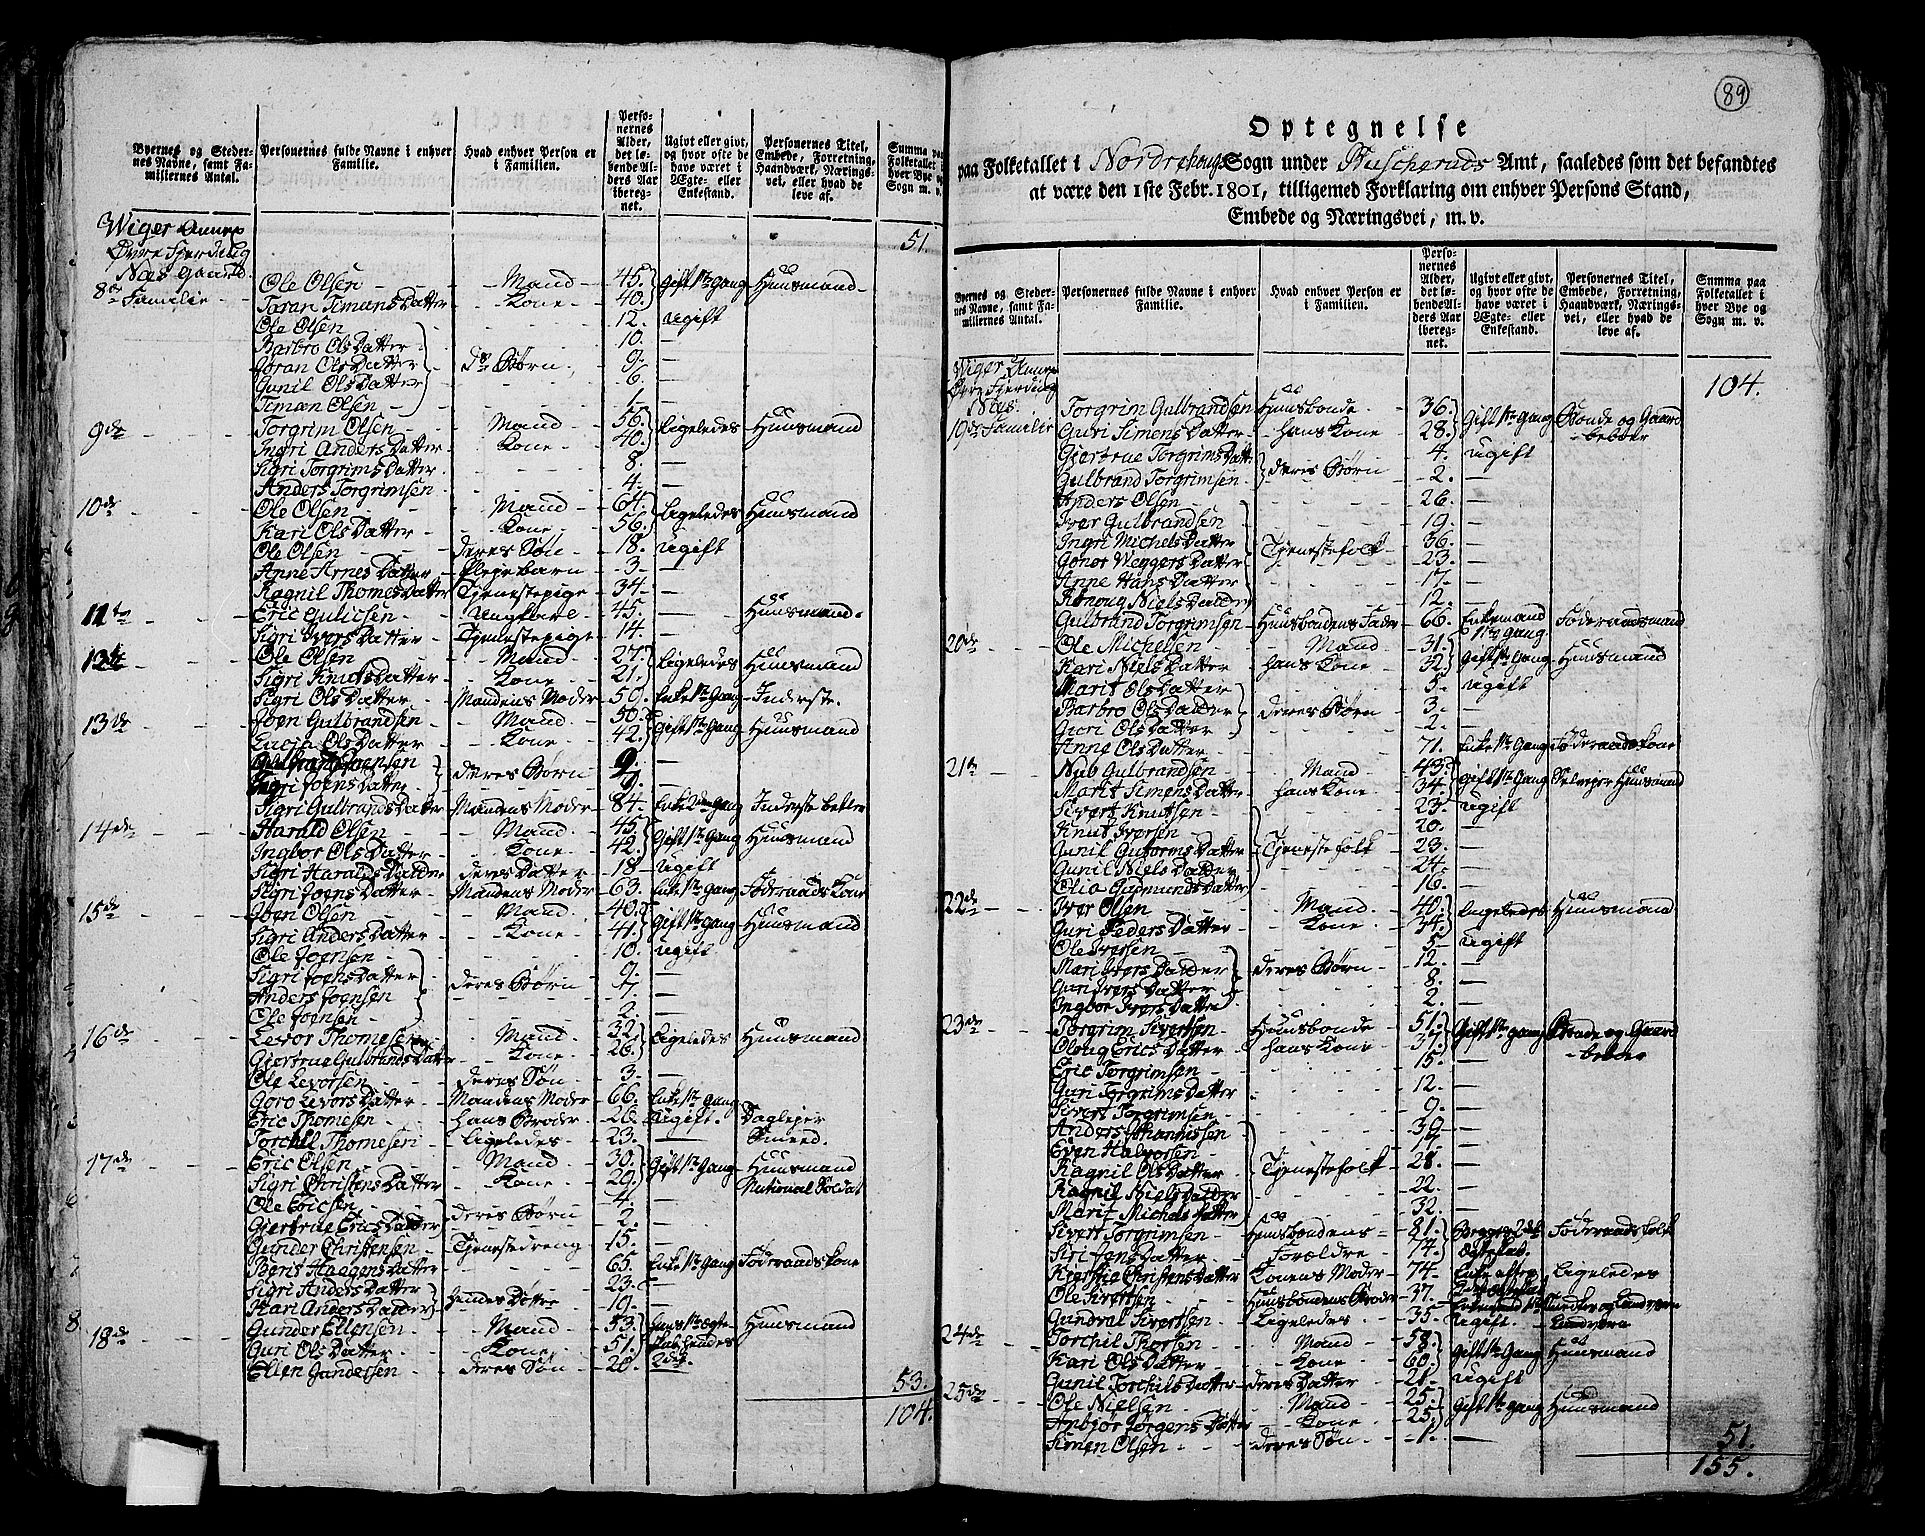 Byernes og Stedernes Navne, samt Familiernes Antal.
Personernes fulde Navne i enhver Familie.
Hvad enhver Person er i Familien.
Personernes Alder, det løbende Alders Aar iberegnet.
Ugivt eller givt, og hvor ofte de have været i Ægte- eller Enkestand.
Personernes Titel, Embede, Forretning, Haandværk, Næringsvei, eller hvad de leve af.
Summa paa Folketallet i hver Bye og Sogn m. v.
Wiger Annex 51.
Øvre Fjerding
Næs Gaard.
8de Familie Ole Olsen Mand 45. Gift 1te Gang Huusmand
Joran Simens Datter Kone 40.
Ole Olsen 12. ugift
Barbro Ols Datter 10. —
Joran Ols Datter ds Børn 9. —
Gunil Ols Datter 6. —
Simæn Olsen 1. —
9de Torgrim Olsen Mand 56. Ligeledes Huusmand
Ingri Anders Datter Kone 40.
Sigri Torgrims Datter 8. —
Anders Torgrimsen 4. —
10de Ole Olsen Mand 64. Ligeledes Huusmand
Kari Ols Datter Kone 56.
Ole Olsen deres Søn 18. ugift
Anne Arnes Datter Plejebarn 3. —
Ragnil Thomes Datter Tjenestepige 34. —
11te Eric Gulicsen Ungkarl 45. — Huusmand.
Sigri Ivers Datter Tjenestepige 14. —
Ole Olsen Mand 27. Ligeledes Huusmand
Sigri Knuts Datter Kone 21.
Sigri Ols Datter Mandens Moder 50. Enke 1te Gang Inderste.
13de Joen Gulbrandsen Mand 50. Gift 1te Gang Huusmand
Ols Datter Kone 42.
Gulbrand Joensen deres Børn 9. —
Ingri Joens Datter —
Sigri Gulbrands Datter Mandens Moder 84. Enke 2den Gang Inderste betler
14de Harald Olsen Mand 45. Gift 1te Gang Huusmand
Ingbor Ols Datter Kone 42.
Sigri Haralds Datter deres Datter 18. ugift
Sigri Joens Datter Mandens Moder 63. Enke 1te Gang Føderaads Kone
15de Joen Olsen Mand 40. Gift 1te Gang Huusmand
Sigri Anders Datter Kone 41.
Ole Joensen 10. ugift
Sigri Joens Datter deres Børn 9. —
Anders Joensen 7. —
Ole Joensen 2. —
16de Levor Thomesen Mand 32. Ligeledes Huusmand
Giertrue Gulbrands Datter Kone 26.
Ole Levorsen deres Søn 3. —
Goro Levors Datter Mandens Moder 66. Enke 1te Gang
Eric Thomesen hans Broder 26. Ugift. Daglejer
Torchil Thomesen Ligeledes 23. — Smeed.
17de Eric Olsen Mand 30. Gift 1te Gang Huusmand
Sigri Christens Datter Kone 29. National Soldat
Ole Ericsen deres Børn 4. —
Giertrue Erics Datter 2. —
Gunder Christensen Tjenestedreng 15. —
Berit Haagens Datter 65. Enke 1te Gang Føderaads kone
Sigri Anders Datter Hendes Døttre 23. —
Kari Anders Datter 19. —
18de Gunder Ellensen Mand 53. hans 1te Ægte- Huusmand
Guri Ols Datter Kone 51. skab hendes
Ellen Gundersen deres Søn 20. 2det
53.
104.
89
Optegnelse
paa Folketallet i Nordrehoug Sogn under Buscheruds Amt, saaledes som det befandtes
at være den 1ste Febr. 1801, tilligemed Forklaring om enhver Persons Stand,
Embede og Næringsvei, m. v.
Byernes og Stedernes Navne, samt Familiernes Antal.
Personernes fulde Navne i enhver Familie.
Hvad enhver Person er i Familien.
Personernes Alder, det løbende Alders Aar iberegnet.
Ugivt eller givt, og hvor ofte de have været i Ægte- eller Enkestand.
Personernes Titel, Embede, Forretning, Haandværk, Næringsvei, eller hvad de leve af.
Summa paa Folketallet i hver Bye og Sogn m. v.
Wiger Annex
Øvre Fjerding 104.
Næs.
19de Familie Torgrim Gulbrandsen Huusbonde 36. Gift 1te Gang Bonde og Gaard
Guri Simens Datter hans Kone 28. beboer
Giertrue Torgrims Datt deres Børn 4. ugift
Gulbrand Torgrimsen 2. —
Anders Olsen 26. —
Iver Gulbrandsen 19. —
Ingri Michels Datter Tjenestefolk 36. —
Gonor Weggers Datter 23. —
Anne Hans Datter 17. —
Niels Datter 12. —
Gulbrand Torgrimsen Huusbondens Fader 66. Enkemand Føderaadsmand
1te Gang
20de Ole Michelsen Mand 31. Gift 1te Gang Huusmand
Kari Niels Datter hans Kone 32.
Marit Ols Datter 5. ugift
Barbro Ols Datter deres Børn 3. —
Giori Ols Datter 2. —
Anne Ols Datter 71. Enke 1te Gang Føderaads Kone
21te Nub Gulbrandsen Mand 43. Gift 1te Gang Selvejer Huusmand
Marit Simens Datter hans Kone 34.
Sivert Knutsen 23. ugift
Knut Iversen 20. —
Gunil Guttorms Datter Tjenestefolk 23. —
Gunil Niels Datter 24. —
Olia Gudmunds Datter 16. —
22de Iver Olsen Mand 40. Ligeledes Huusmand
Guri Peders Datter Kone 34.
Ole Iversen 5. ugift
Mari Ivers Datter deres Børn 12. —
Guri Ivers Datter 8. —
Ingbor Ivers Datter 2. —
23de Torgrim Sivertsen Huusbonde 51. Gift 1te Gang Bonde og Gaard
Oloug Erics Datter hans Kone 37. beboer
Eric Torgrimsen 15. —
Guri Torgrims Datter 12. —
Sivert Torgrimsen 9. —
Anders Johannissen 39. —
Even Halvorsen —
Ragnil Ols Datter Tjenestefolk 28. —
Ragnil Niels Datter 22. —
Marit Michels Datter 32. —
Sivert Torgrimsen Huusbondens 81. Begge 2det Føderaadsfolk
Siri Jens Datter Forældre 74. Ægteskab.
Kjersti Christens Datter Konens Moder 74. Enke efter Ligeledes
Ole Sivertsen Huusbondens Broder 37.
Gundval Sivertsen Ligeledes 35. Ugift.
24de Torchil Thorsen Mand 58. Gift 1te Gang Huusmand
Kari Ols Datter Kone 60.
Gunil Torchils Datter deres Datter 21. ugift
25de Ole Nielsen Mand 25. Gift 1te Gang Huusmand
Anbjør Jørgens Datter Kone 25.
Simen Olsen deres Søn 1. —
51.
155.